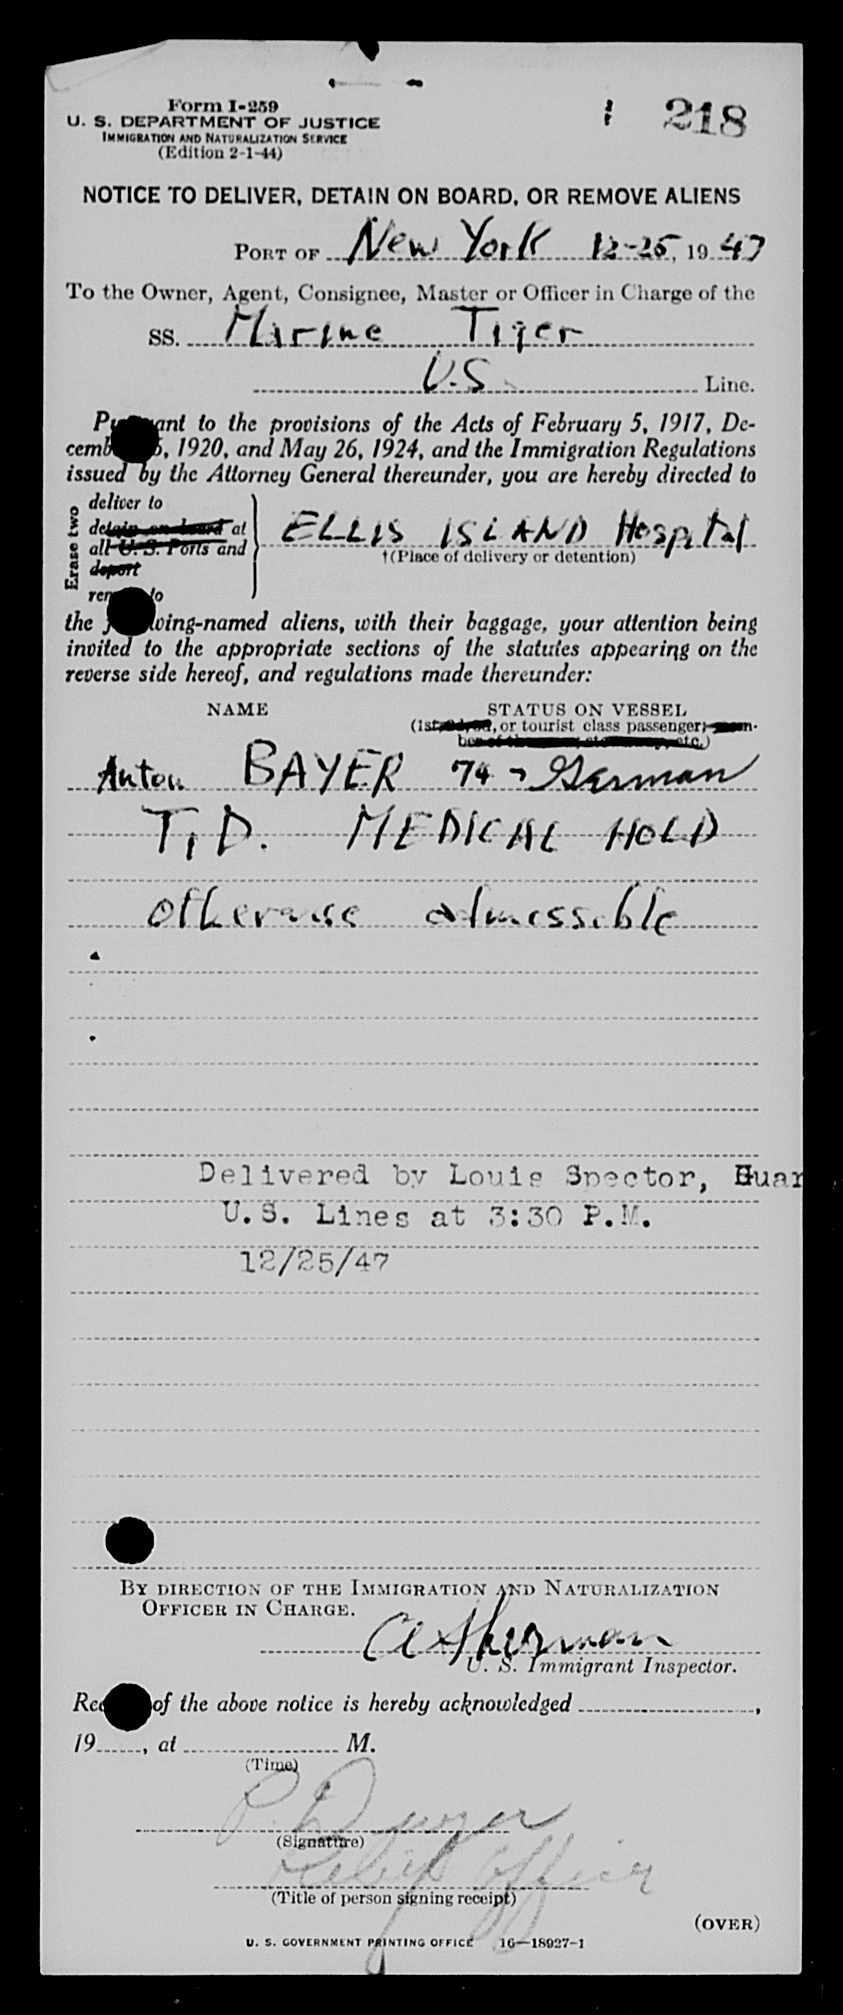 Form I-259
U. S. DEPARTMENT OF JUSTICE
IMMIGRATION AND NATURALIZATION SERVICE
(Edition 2-1-44)
218
NOTICE TO DELIVER, DETAIN ON BOARD, OR REMOVE ALIENS
PORT OF New York 12-25, 19 47
To the Owner, Agent, Consignee, Master or Officer in Charge of the
SS. Marine Tiger
U.S. Line.
ant to the provisions of the Acts of February 5, 1917, De-
cemb 5, 1920, and May 26, 1924, and the Immigration Regulations
issued by the Attorney General thereunder, you are hereby directed to
Erase two
deliver to
detain on board at
all U. S. Ports and
deport
rem to
ELLIS ISLAND Hospital
†(Place of delivery or detention)
the wing-named aliens, with their baggage, your attention being
invited to the appropriate sections of the statutes appearing on the
reverse side hereof, and regulations made thereunder:
NAME STATUS ON VESSEL
(1st, or tourist class passenger;
etc.)
Anton BAYER 74 - German
T,D. MEDICAL HOLD
otherwise admissible
Delivered by Louis Spector, Guar
U.S. Lines at 3:30 P.M.
12/25/47
BY DIRECTION OF THE IMMIGRATION AND NATURALIZATION
OFFICER IN CHARGE.
U. S. Immigrant Inspector.
Rec of the above notice is hereby acknowledged ,
19 , at M.
(Time)
(Signature)
Relief Officer
(Title of person signing receipt)
(OVER)
U. S. GOVERNMENT PRINTING OFFICE 16—18927-1